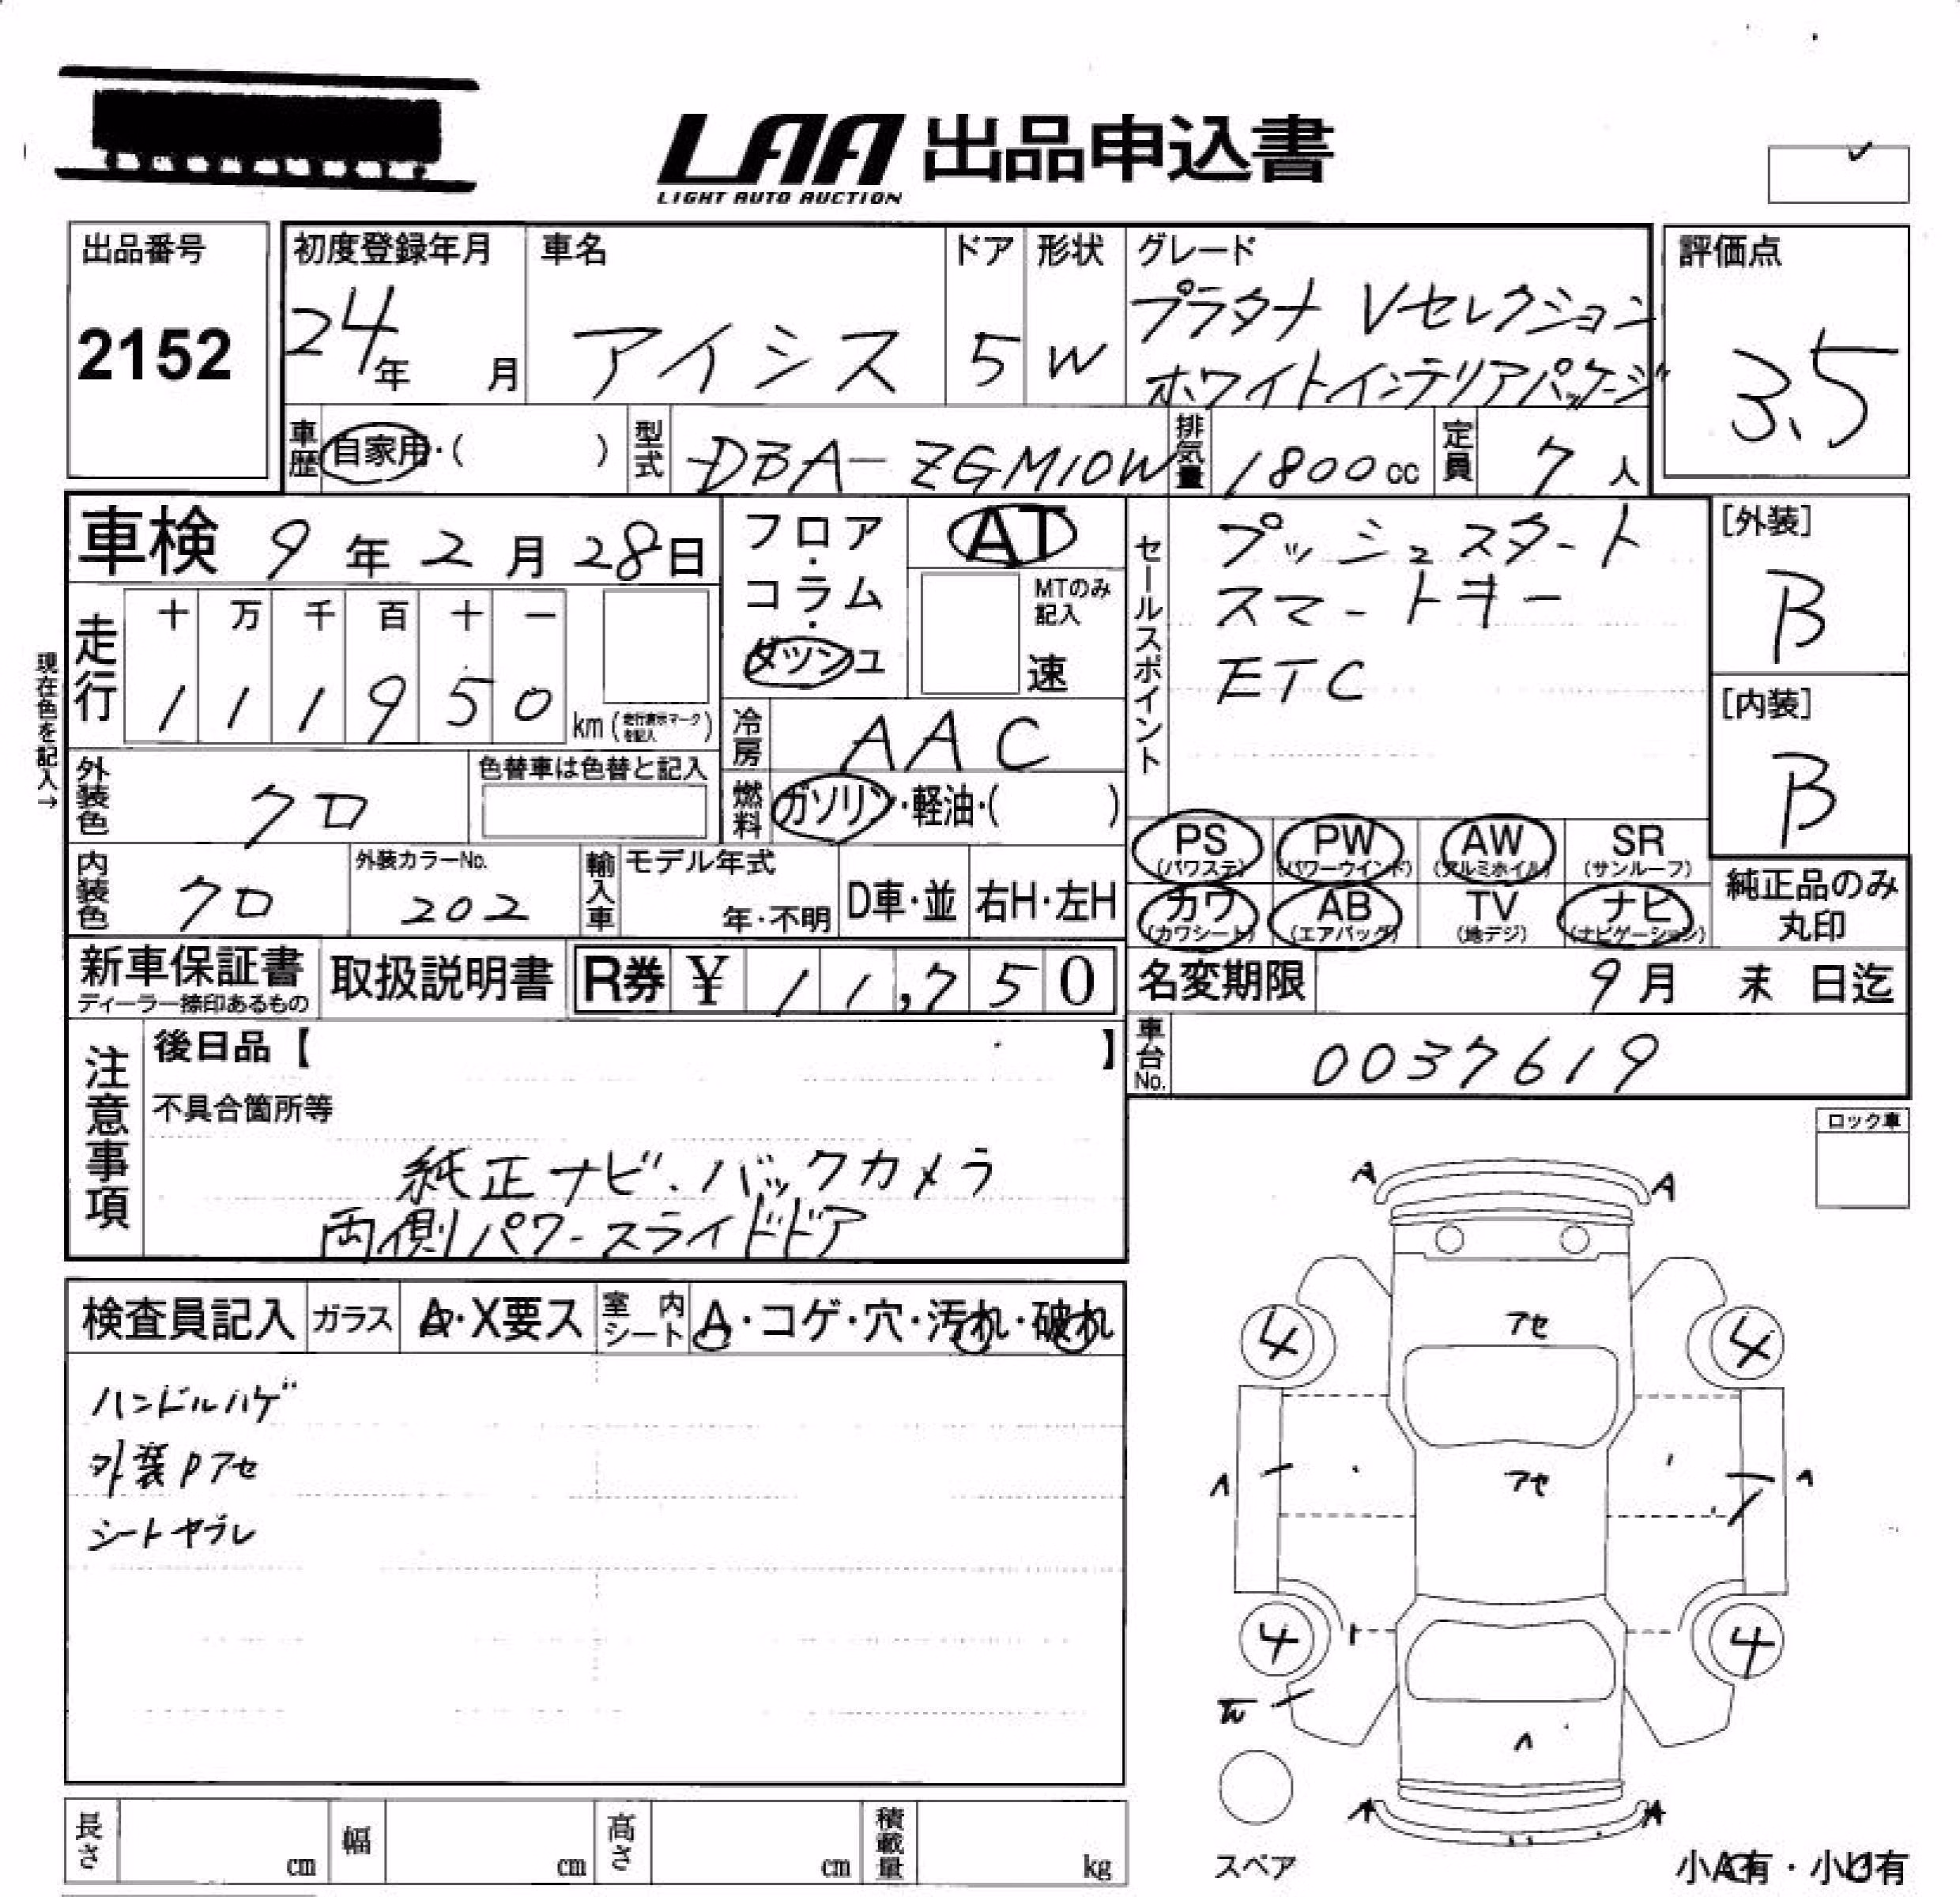 LAA 出品申込書
LIGHT AUTO AUCTION
出品番号
2152
初度登録年月
24年 月
車名
アイシス
ドア
5
形状
W
グレード
プラタナ Vセレクション
ホワイトインテリアパッケージ
評価点
3.5
車歴 自家用・( )
型式 DBA-ZGM10W
排気量 1800cc
定員 7人
車検 9年2月28日
フロア・コラム・ダッシュ
AT
MTのみ記入
速
セールスポイント
プッシュスタート
スマートキー
ETC
[外装]
B
[内装]
B
現在色を記入→
走行
十 万 千 百 十 一
1 1 1 9 5 0 km (走行表示マークを記入)
冷房 AAC
外装色 クロ
色替車は色替と記入
燃料 ガソリン・軽油・( )
PS (パワステ) PW (パワーウインド) AW (アルミホイル) SR (サンルーフ)
カワ (カワシート) AB (エアバッグ) TV (地デジ) ナビ (ナビゲーション)
純正品のみ丸印
内装色 クロ
外装カラーNo. 202
輸入車 モデル年式 年・不明 D車・並 右H・左H
新車保証書 ディーラー捺印あるもの
取扱説明書
R券 ¥ 11,750
名変期限 9月 末 日迄
車台No. 0037619
注意事項
後日品【 】
不具合箇所等
純正ナビ・バックカメラ
両側パワースライドドア
ロック車
検査員記入 ガラス A・X要ス 室内シート A・コゲ・穴・汚れ・破れ
ハンドルハゲ
外装Pアセ
シートヤブレ
A A
アセ
4 4
アセ
4 4
A A
スペア
小A有・小U有
長さ cm 幅 cm 高さ cm 積載量 kg